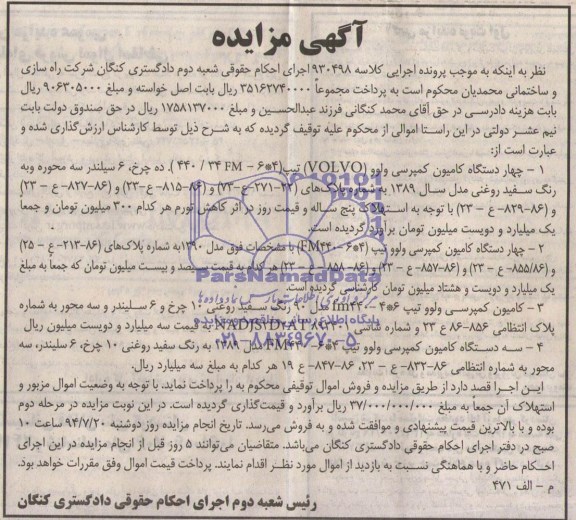 آگهی مزایده
نظر به اینکه به موجب پرونده اجرایی کلاسه ۹۳۰۴۹۸ اجرای احکام حقوقی شعبه دوم دادگستری کنگان شرکت راه سازی
و ساختمانی محمدیان محکوم است به پرداخت مجموعاً ۳۵۱۶۲۷۴۰۰۰۰ ریال بابت اصل خواسته و مبلغ ۹۰۶۳۰۵۰۰۰ ریال
بابت هزینه دادرسی در حق آقای محمد کنگانی فرزند عبدالحسین و مبلغ ۱۷۵۸۱۳۷۰۰۰ ریال در حق صندوق دولت بابت
نیم عشر دولتی در این راستا اموالی از محکوم علیه توقیف گردیده که به شرح ذیل توسط کارشناس ارزش‌گذاری شده و
عبارت است از:
۱ – چهار دستگاه کامیون کمپرسی ولوو (VOLVO) تیپ(۴*۶ – FM ۳۴ / ۴۴۰)، ده چرخ، ۶ سیلندر سه محوره وبه
رنگ سفید روغنی مدل سال ۱۳۸۹ به شماره پلاک‌های (۲۲–۲۷۱ع–۷۳) و (۸۶–۸۱۵–ع–۲۳) و (۸۶–۸۲۷– ع – ۲۳)
و (۸۶–۸۳۹– ع – ۲۳) با توجه به استهلاک پنج ساله و قیمت روز در اثر کاهش تورم هر کدام ۳۰۰ میلیون تومان و جمعاً
یک میلیارد و دویست میلیون تومان برآورد گردیده است.
۲ – چهار دستگاه کامیون کمپرسی ولوو تیپ (۴*۶–FM۴۴۰) با مشخصات فوق مدل ۱۳۹۰به شماره پلاک‌های (۸۶–۲۱۳– ع – ۲۵)
و (۸۵۵/۸۶– ع – ۲۳) و (۸۶–۸۵۷– ع – ۲۳) و (۸۶–۸۵۸– ع – ۲۳) هر کدام به قیمت سیصد و بیست میلیون تومان که جمعاً به مبلغ
یک میلیارد و دویست و هشتاد میلیون تومان کارشناسی گردیده است.
۳ – کامیون کمپرسی ولوو تیپ ۴*۶ – fm۴۴۰ مدل ۹۰ رنگ سفید روغنی ۱۰ چرخ و ۶ سلیندر و سه محور به شماره
پلاک انتظامی ۸۵۶–۸۶ ع ۲۳ و شماره شاسی به قیمت سه میلیارد و دویست میلیون ریال
۴ – سه دستگاه کامیون کمپرسی ولوو تیپ ۴*۶–FM۴۴۰ مدل ۱۳۸۹ به رنگ سفید روغنی ۱۰ چرخ، ۶ سلیندر، سه
محور به شماره انتظامی ۸۶–۸۳۲– ع – ۲۳، ۸۶–۸۴۷– ع ۱۹ هر کدام به مبلغ سه میلیارد ریال.
این اجرا قصد دارد از طریق مزایده و فروش اموال توقیفی محکوم به را پرداخت نماید. با توجه به وضعیت اموال مزبور و
استهلاک آن جمعاً به مبلغ ۳۷/۰۰۰/۰۰۰/۰۰۰ ریال برآورد و قیمت‌گذاری گردیده است. در این نوبت مزایده در مرحله دوم
بوده و با بالاترین قیمت پیشنهادی و موافقت شده و به فروش می‌رسد. تاریخ انجام مزایده روز دوشنبه ۹۴/۷/۲۰ ساعت ۱۰
صبح در دفتر اجرای احکام حقوقی دادگستری کنگان می‌باشد. متقاضیان می‌توانند ۵ روز قبل از انجام مزایده در این اجرای
احکام حاضر و با هماهنگی نسبت به بازدید از اموال مورد نظر اقدام نمایند. پرداخت قیمت اموال وفق مقررات خواهد بود.
م – الف ۴۷۱
رئیس شعبه دوم اجرای احکام حقوقی دادگستری کنگان
ParsNamadData
۰۲۱–۸۸۳۴۹۶۷۰–۵